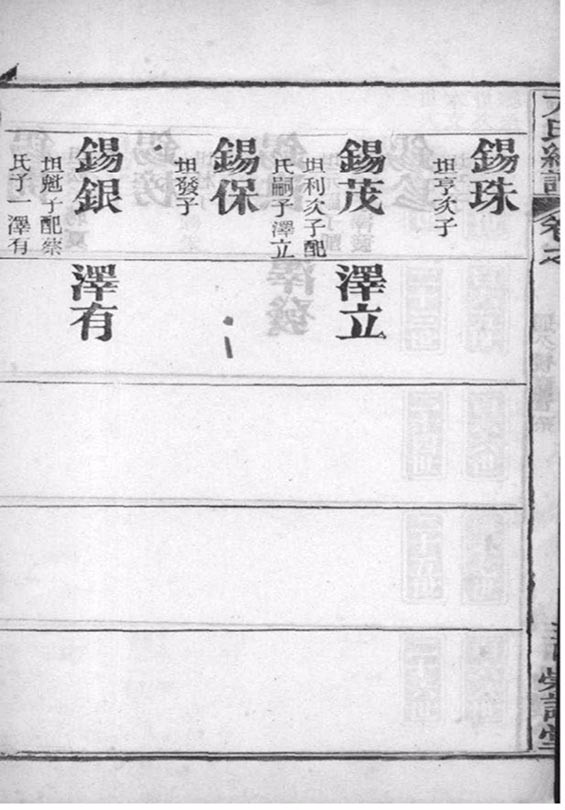 錫珠
坦亨次子
錫茂
坦利次子配
氏嗣子澤立
澤立
錫保
坦發子
錫銀
坦魁子配柴
氏子一澤有
澤有
氏
卷之